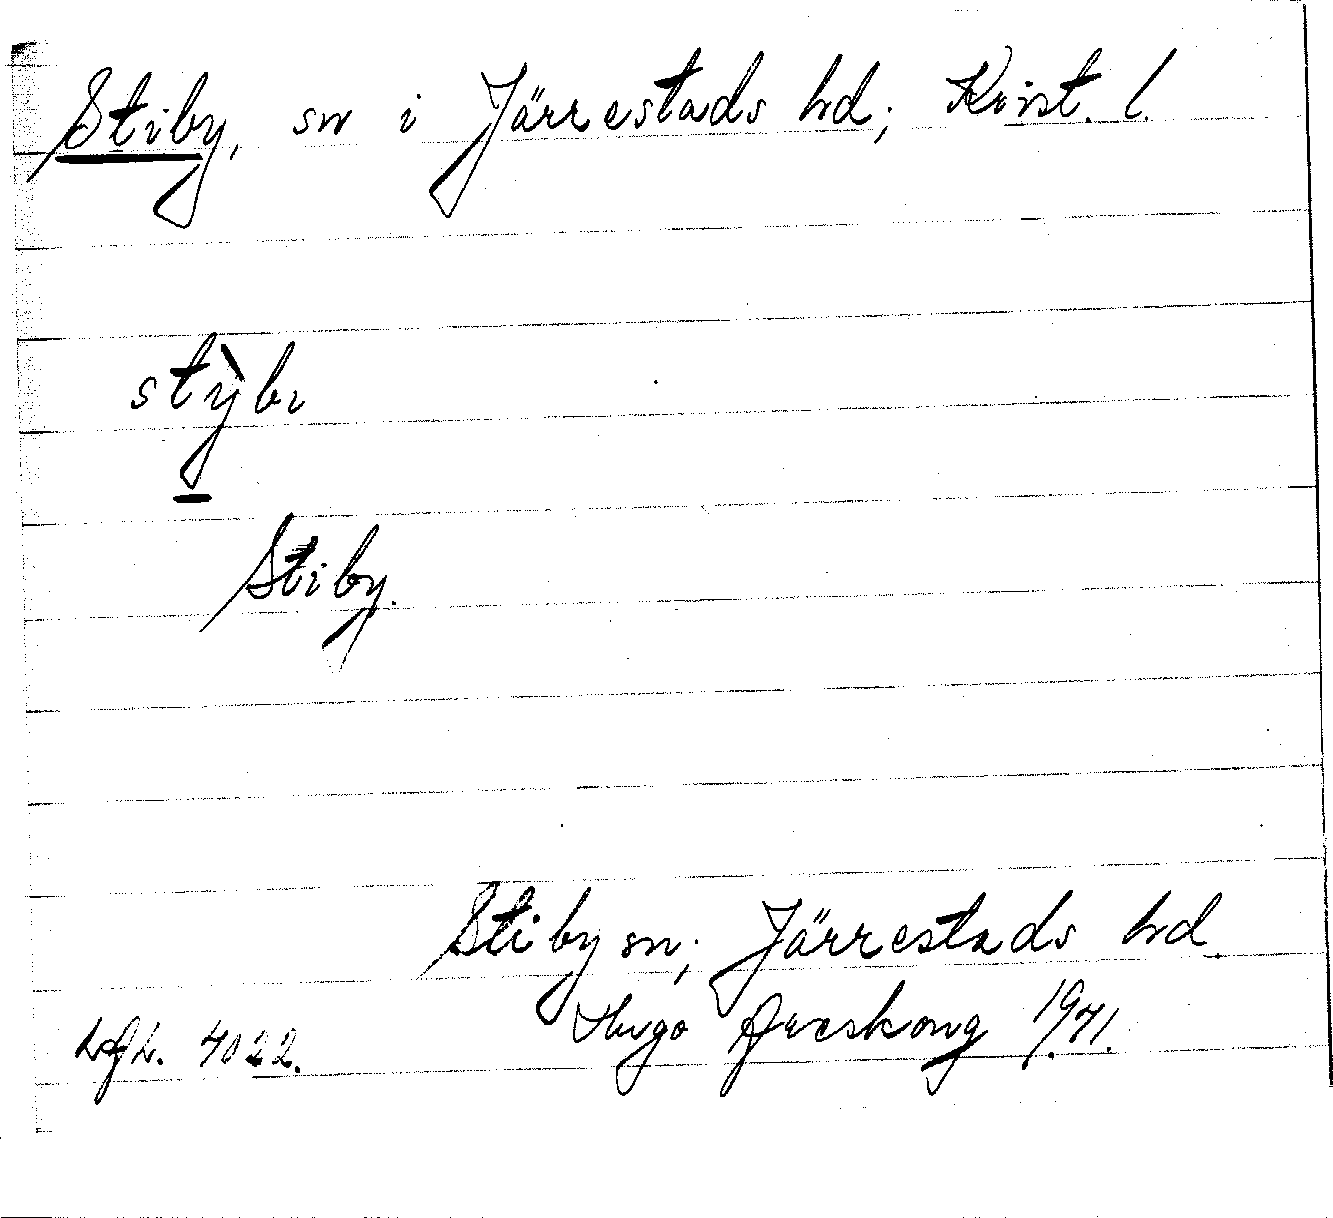 Stiby, sn i Järrestads hd; Krist. l.
stỳ̱bi
Stiby.
Stiby sn; Järrestads hd.
Hugo Areskoug 1941.
LAL. 4022.